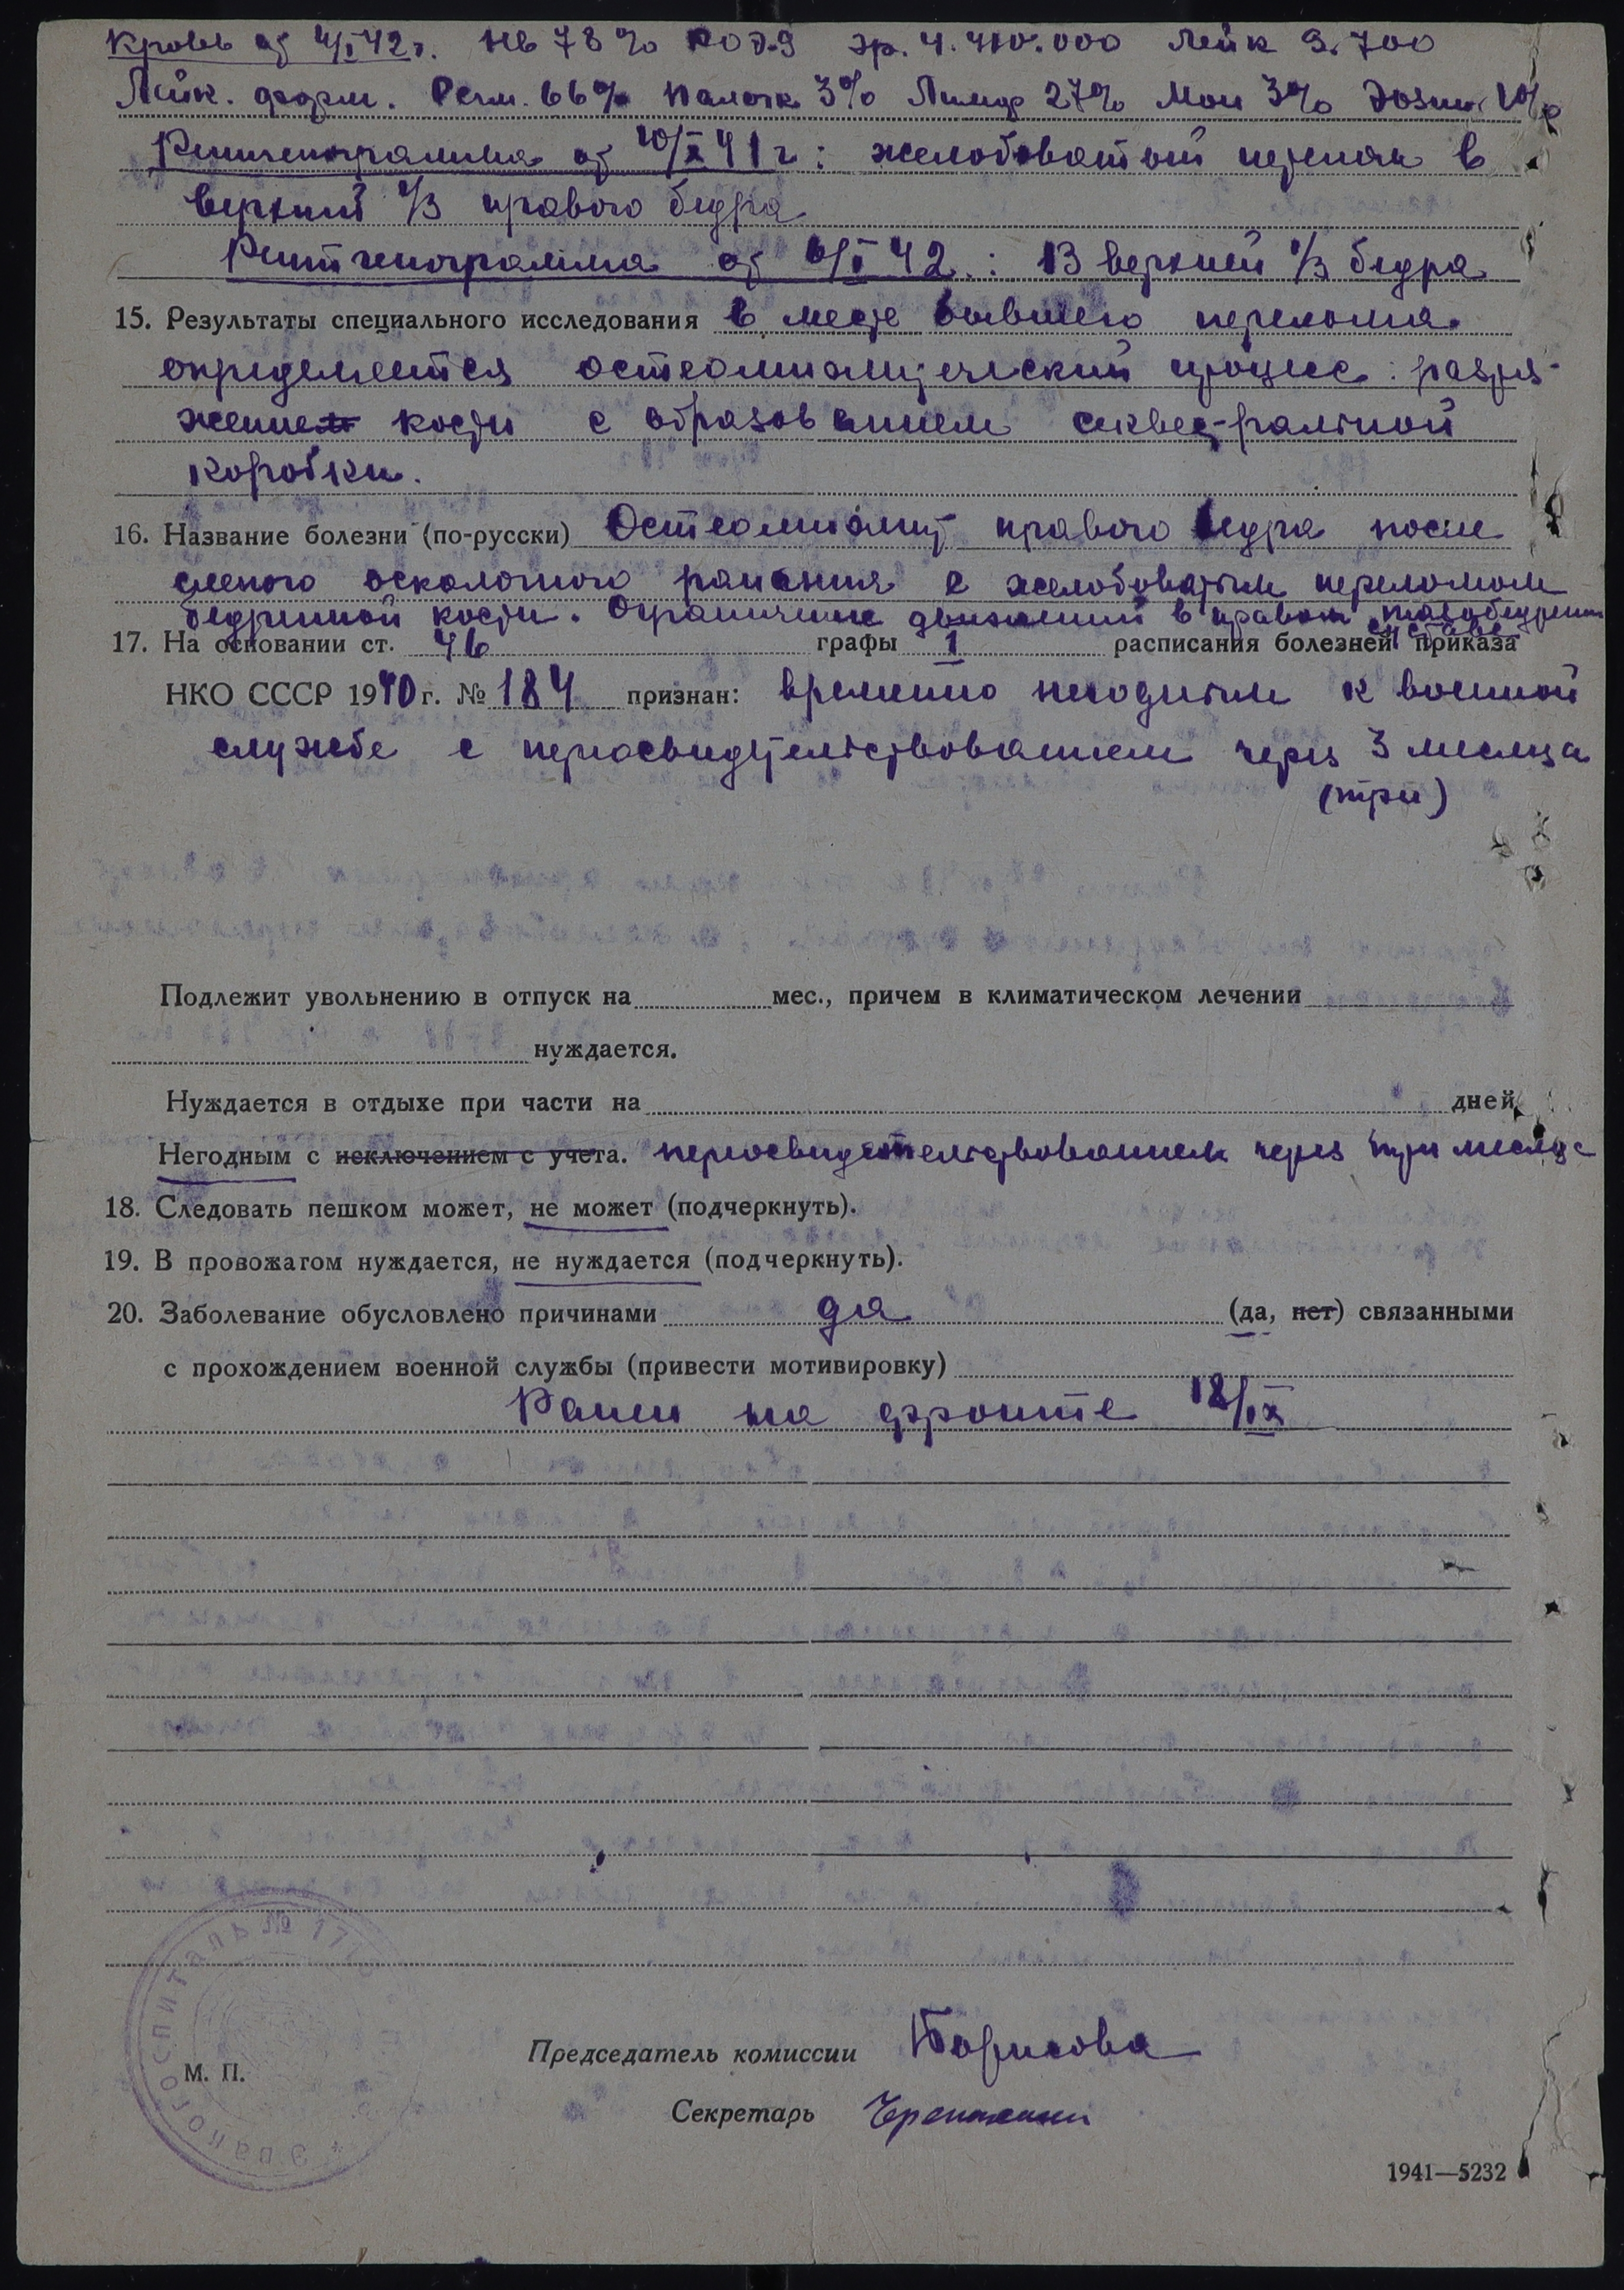 Кровь от 4/I 42 г. Нв 78% РОЭ-9 Эр. 4.410.000 Лейк 9.700
Лейк. форм. Сегм. 66% Палочк 3% Лимф 27% Мон 3% Эозин 1%
Рентгенограмма от 10/X 41 г: желобоватый перелом в
верхний 1/3 правого бедра
Рентгенограмма от 6/I 42 : В верхней 1/3 бедра
15. Результаты специального исследования в месте бывшего перелома
определяется остеомиэлитический процесс: разря-
жение кости с образованием секвестральной
коробки.
16. Название болезни (по-русски) Остеомиэлит правого бедра после
слепого осколочного ранения с желобоватым переломом
бедренной кости. Ограничение движений в правом тазобедренном
суставе.
17. На основании ст. 46 графы 1 расписания болезней приказа
НКО СССР 1940 г. № 184 признан: временно негодным к военной
службе с переосвидетельствованием через 3 месяца
(три)
Подлежит увольнению в отпуск на мес., причем в климатическом лечении
нуждается.
Нуждается в отдыхе при части на дней
Негодным с исключением с учета. переосвидетельствованием через три месяца
18. Следовать пешком может, не может (подчеркнуть).
19. В провожагом нуждается, не нуждается (подчеркнуть).
20. Заболевание обусловлено причинами да (да, нет) связанными
с прохождением военной службы (привести мотивировку)
Ранен на фронте 12/IX
Эвакогоспиталь №
М. П.
Председатель комиссии Борисова
Секретарь
1941—5232